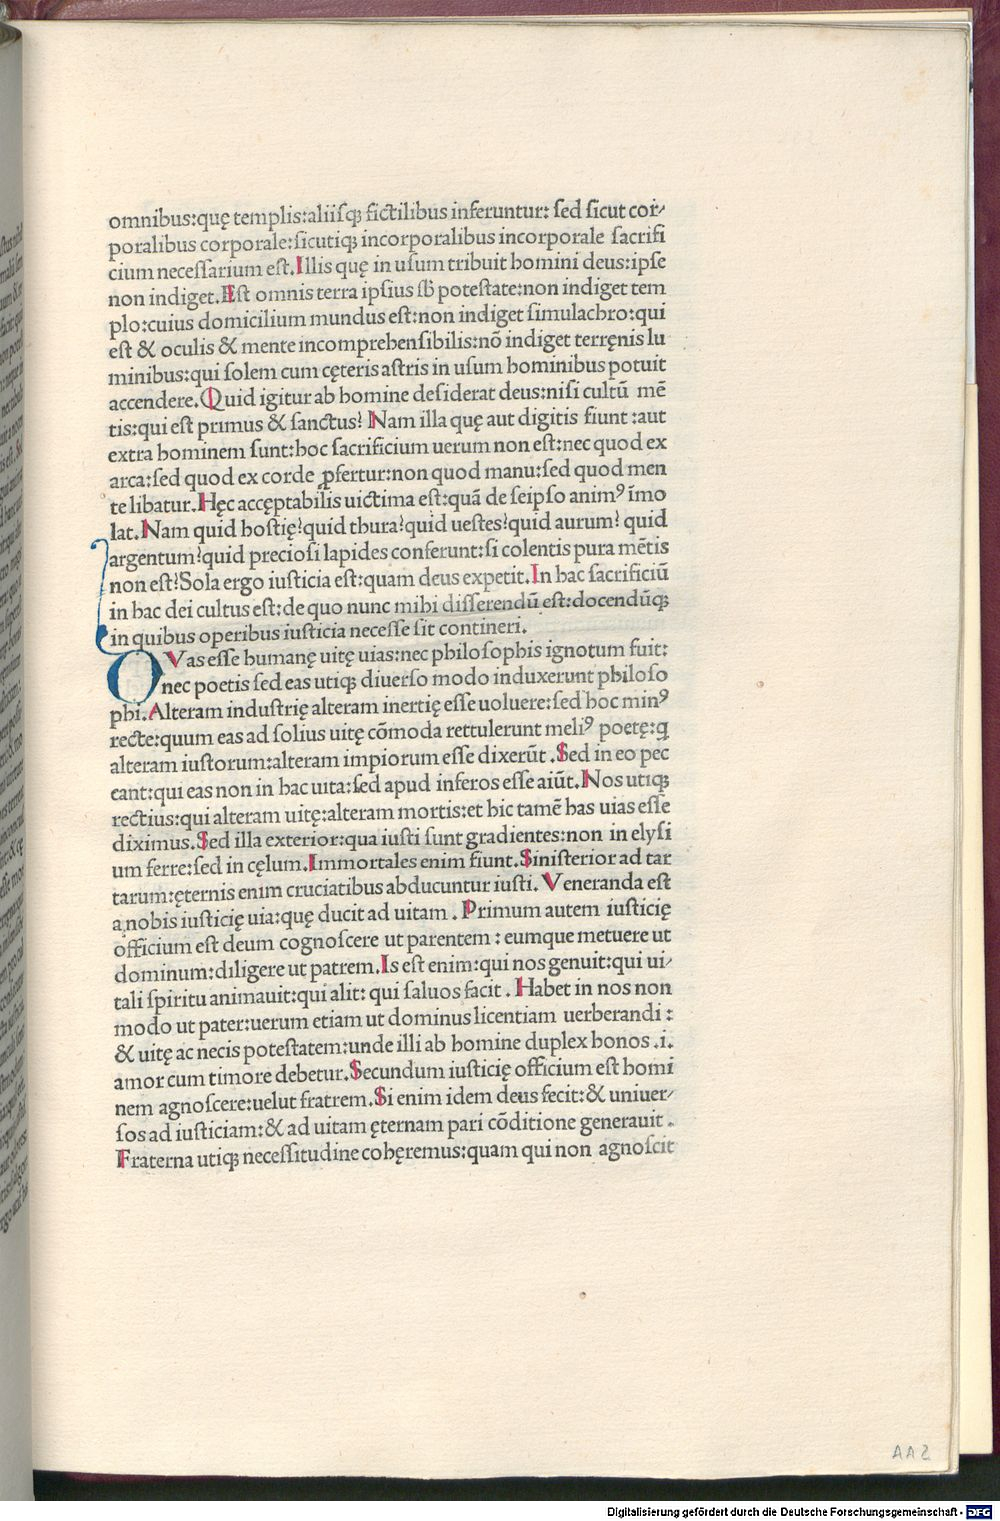 omnibus:quę templis:aliiſq; fictilibus inferuntur: ſed ſicut cor-
poralibus corporale:ſicutiq; incorporalibus incorporale ſacrifi
cium neceſſarium eſt.Illis quę in uſum tribuit homini deus:ipſe
non indiget.Eſt omnis terra ipſius ſb̄ poteſtate:non indiget tem
plo:cuius domicilium mundus eſt:non indiget ſimulachro:qui
eſt & oculis & mente incomprehenſibilis:nō indiget terręnis lu
minibus:qui ſolem cum cęteris aſtris in uſum hominibus potuit
accendere.Quid igitur ab homine deſiderat deus:niſi cultū mē
tis:qui eſt primus & ſanctus? Nam illa quę aut digitis fiunt :aut
extra hominem ſunt:hoc ſacrificium uerum non eſt:nec quod ex
arca:ſed quod ex corde ꝓfertur:non quod manu:ſed quod men
te libatur.Hęc accęptabilis uictima eſt:quā de ſeipſo animꝰ īmo
lat.Nam quid hoſtię?quid thura?quid ueſtes?quid aurum? quid
argentum?quid precioſi lapides conferunt:ſi colentis pura mētis
non eſt?Sola ergo iuſticia eſt:quam deus expetit.In hac ſacrificiū
in hac dei cultus eſt:de quo nunc mihi diſſerendū eſt:docendūq;
in quibus operibus iuſticia neceſſe ſit contineri.
DVas eſſe humanę uitę uias:nec philoſophis ignotum fuit:
nec poetis ſed eas utiq; diuerſo modo induxerunt philoſo
phi.Alteram induſtrię alteram inertię eſſe uoluere:ſed hoc minꝰ
recte:quum eas ad ſolius uitę cōmoda rettulerunt meliꝰ poetę:q
alteram iuſtorum:alteram impiorum eſſe dixerūt .Sed in eo pec
cant:qui eas non in hac uita:ſed apud inferos eſſe aiūt.Nos utiq;
rectius:qui alteram uitę:alteram mortis:et hic tamē has uias eſſe
diximus.Sed illa exterior:qua iuſti ſunt gradientes:non in elyſi
um ferre:ſed in cęlum.Immortales enim fiunt.Siniſterior ad tar
tarum:ęternis enim cruciatibus abducuntur iuſti. Veneranda eſt
a nobis iuſticię uia:quę ducit ad uitam . Primum autem iuſticię
officium eſt deum cognoſcere ut parentem : eumque metuere ut
dominum:diligere ut patrem.Is eſt enim:qui nos genuit:qui ui-
tali ſpiritu animauit:qui alit: qui ſaluos facit . Habet in nos non
modo ut pater:uerum etiam ut dominus licentiam uerberandi :
& uitę ac necis poteſtatem:unde illi ab homine duplex honos .i.
amor cum timore debetur.Secundum iuſticię officium eſt homi
nem agnoſcere:uelut fratrem.Si enim idem deus fecit:& uniuer-
ſos ad iuſticiam:& ad uitam ęternam pari cōditione generauit .
Fraterna utiq; neceſſitudine cohęremus:quam qui non agnoſcit
AA2
Digitalisierung gefördert durch die Deutsche Forschungsgemeinschaft - DFG